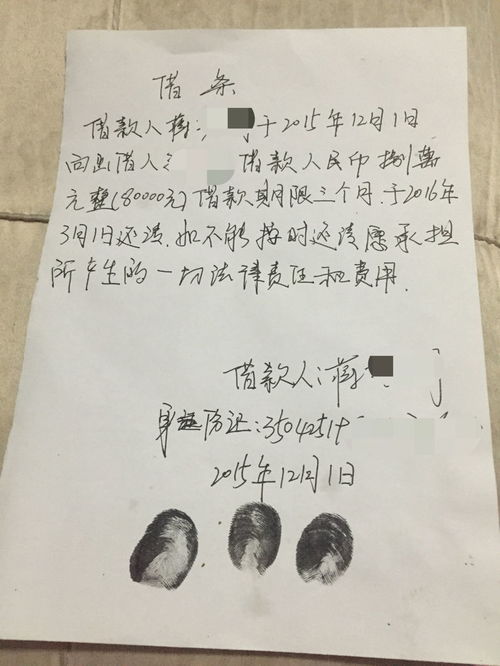 借条
借款人 于2015年12月1日
向出借人 借款人民币捌萬
元整(80000元)借款期限三个月.于2016年
3月1日还清.如不能按时还清愿承担
所产生的一切法律责任和费用.
借款人:蒋
身 证:3504251
2015年12月1日